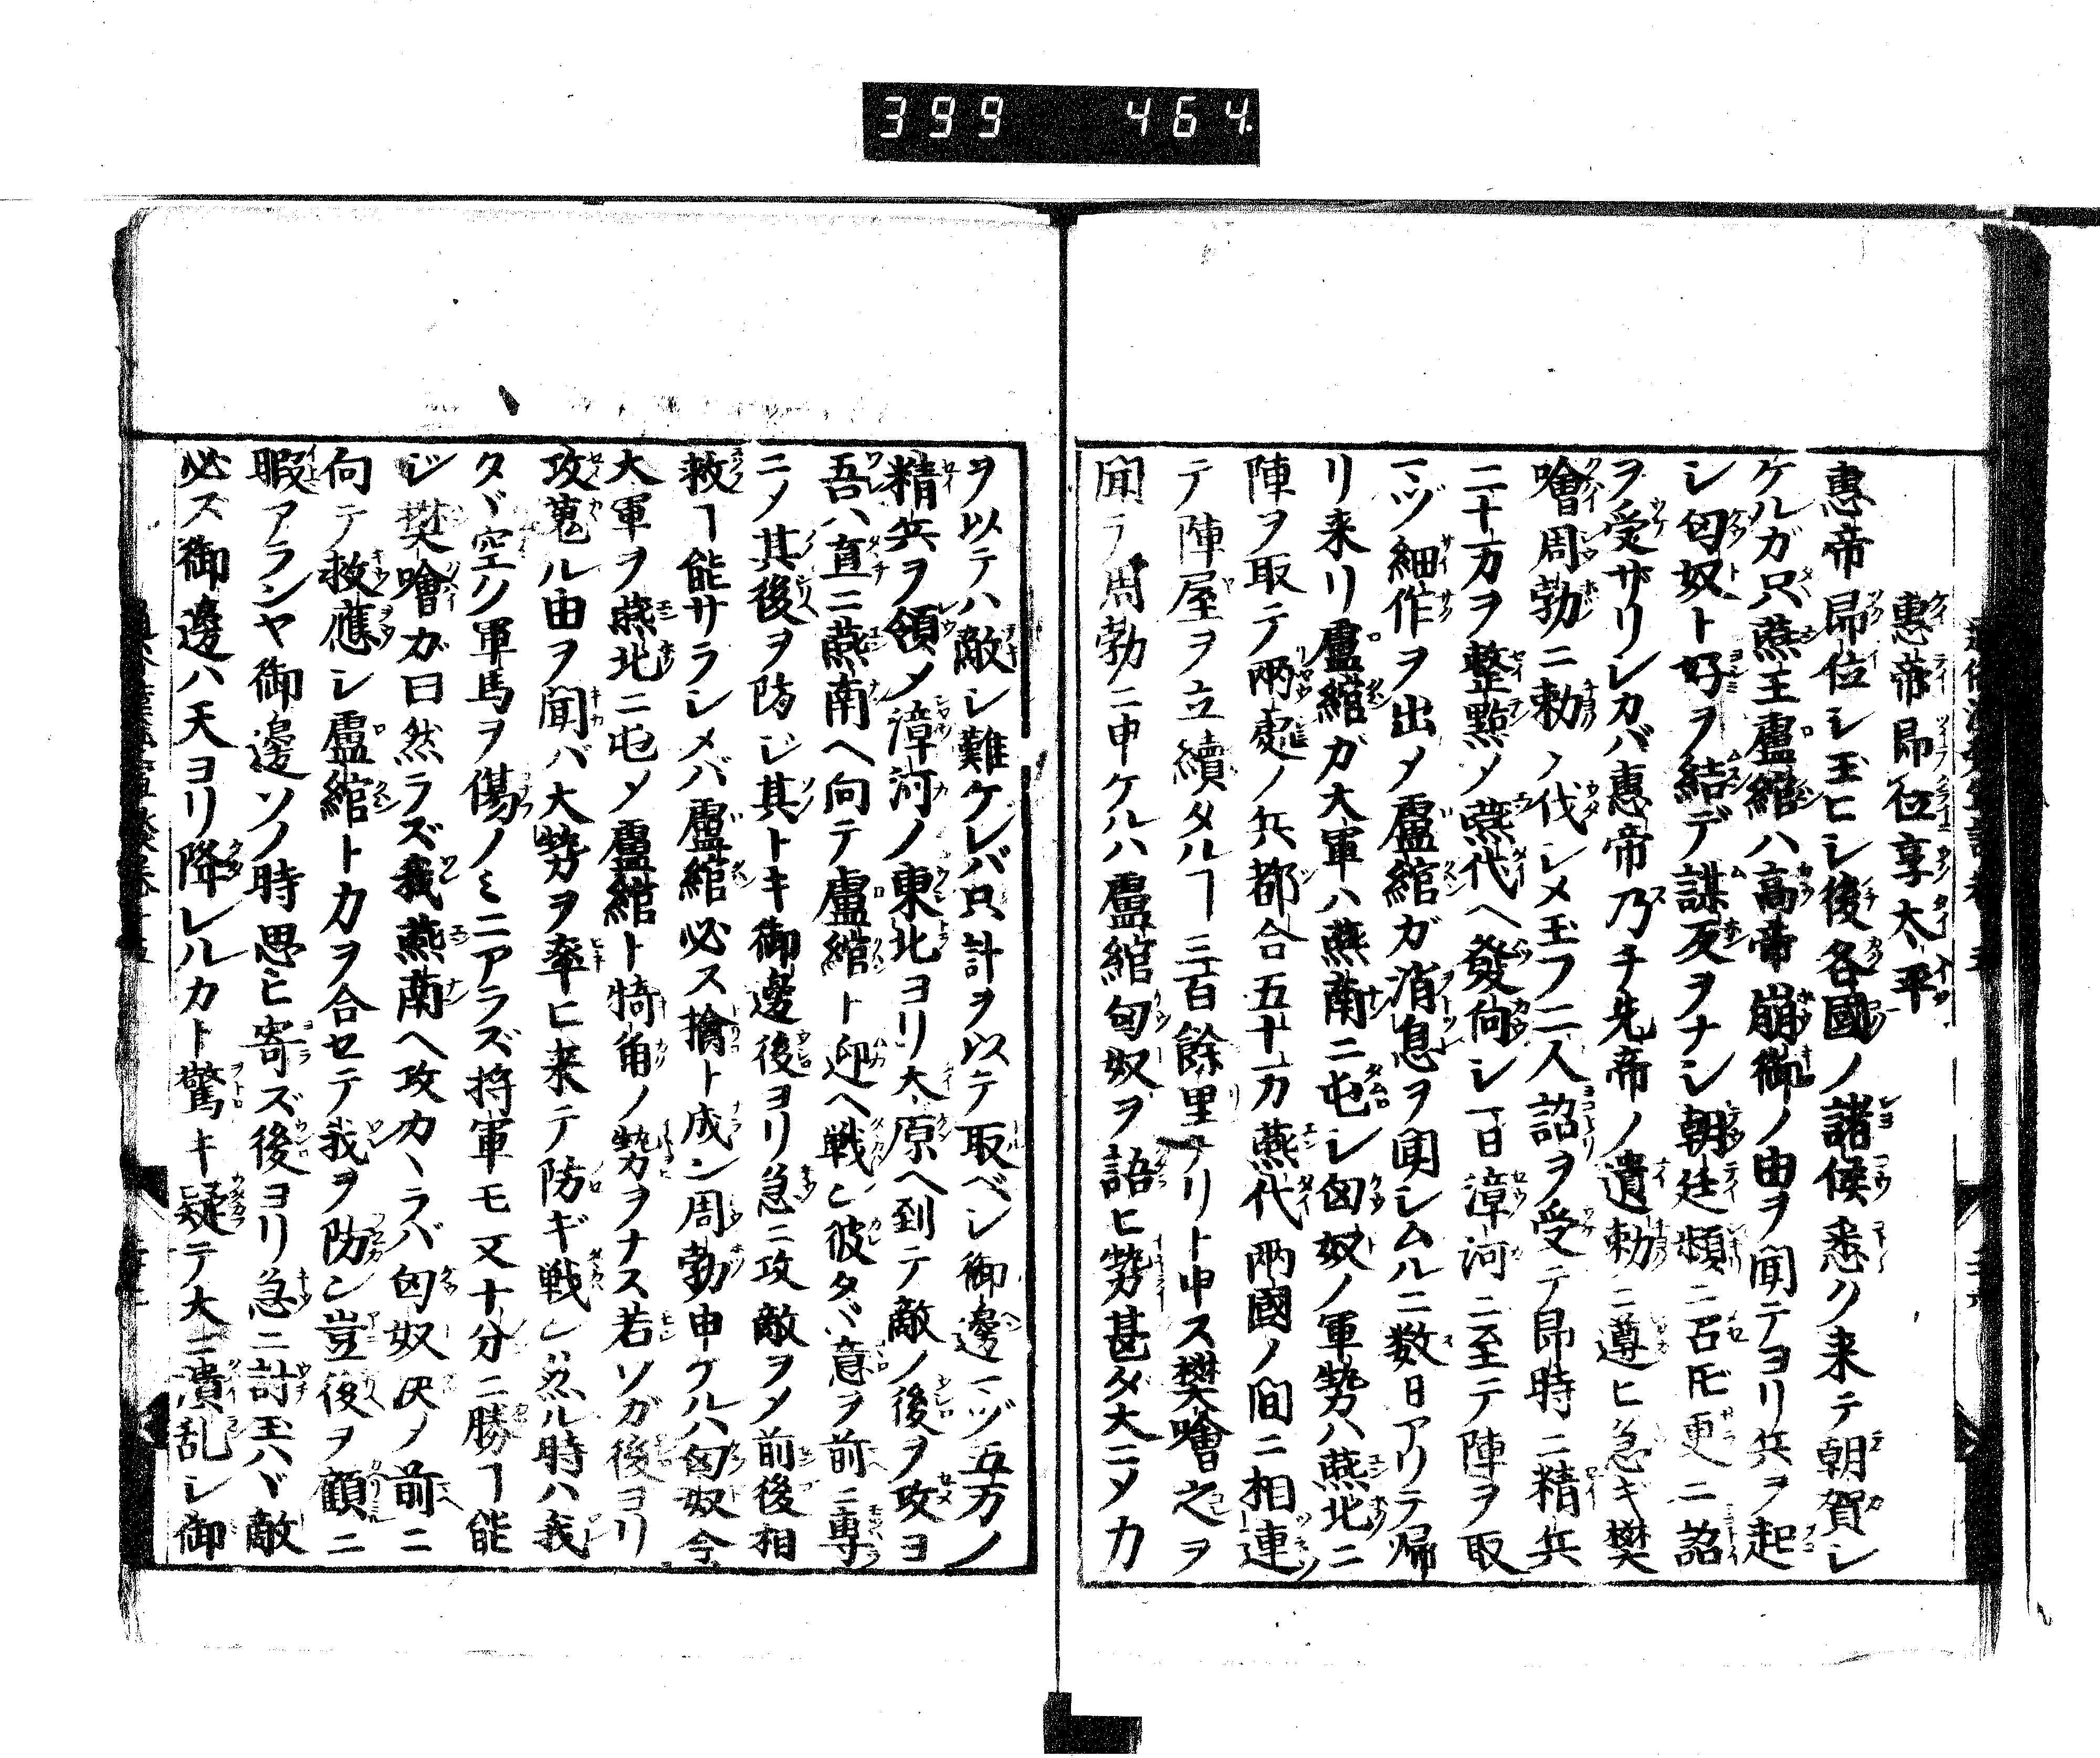 399 464
惠帝即位享太平
惠帝即位シ玉ヒシ後各國ノ諸侯悉ク来テ朝賀シ
ケルガ只燕王盧綰ハ高帝崩御ノ由ヲ聞テヨリ兵ヲ起
シ匈奴ト好ヲ結デ謀反ヲナシ朝廷頻ニ召𪜈更ニ詔
ヲ受ザリシカバ惠帝乃チ先帝ノ遺勅ニ遵ヒ急ギ樊
噲周勃ニ勅ノ伐シメ玉フ二人詔ヲ受テ即時ニ精兵
二十万ヲ整點メ燕代ヘ發向シ一日漳河ニ至テ陣ヲ取
マヅ細作ヲ出メ盧綰ガ消息ヲ聞シムルニ数日アリテ帰
リ来リ盧綰ガ大軍ハ燕南ニ屯シ匈奴ノ軍勢ハ燕北ニ
陣ヲ取テ兩處ノ兵都合五十万燕代兩國ノ間ニ相連
テ陣屋ヲ立續タルヿ三百餘里ナリト申ス樊噲之ヲ
聞テ周勃ニ申ケルハ盧綰匈奴ヲ語ヒ勢甚ダ大ニメカ
ヲ以テハ敵シ難ケレバ只計ヲ以テ取ベシ御邊マヅ五万ノ
精兵ヲ領メ漳河ノ東北ヨリ大原ヘ到テ敵ノ後ヲ攻ヨ
吾ハ直ニ燕南ヘ向テ盧綰ト迎ヘ戦ン彼タヾ意ヲ前ニ專
ニメ其後ヲ防ジ其トキ御邊後ヨリ急ニ攻敵ヲメ前後相
救ヿ能サラシメバ盧綰必ス擒ト成ン周勃申ケルハ匈奴今
大軍ヲ燕北ニ屯メ盧綰ト犄角ノ勢ヲナス若ソガ後ヨリ
攻蒐ル由ヲ聞バ大勢ヲ率ヒ来テ防ギ戦ン然ル時ハ我
タヾ空ク軍馬ヲ傷ノミニアラズ将軍モ又十分ニ勝ヿ能
ジ樊噲ガ曰然ラズ我燕南ヘ攻カヽラバ匈奴決メ前ニ
向テ救應シ盧綰ト力ヲ合セテ我ヲ防ン豈後ヲ顧ニ
暇アランヤ御邊ソノ時思ヒ寄ズ後ヨリ急ニ討玉ハヾ敵
必ス御邊ハ天ヨリ降レルカト驚キ疑テ大ニ潰乱シ御